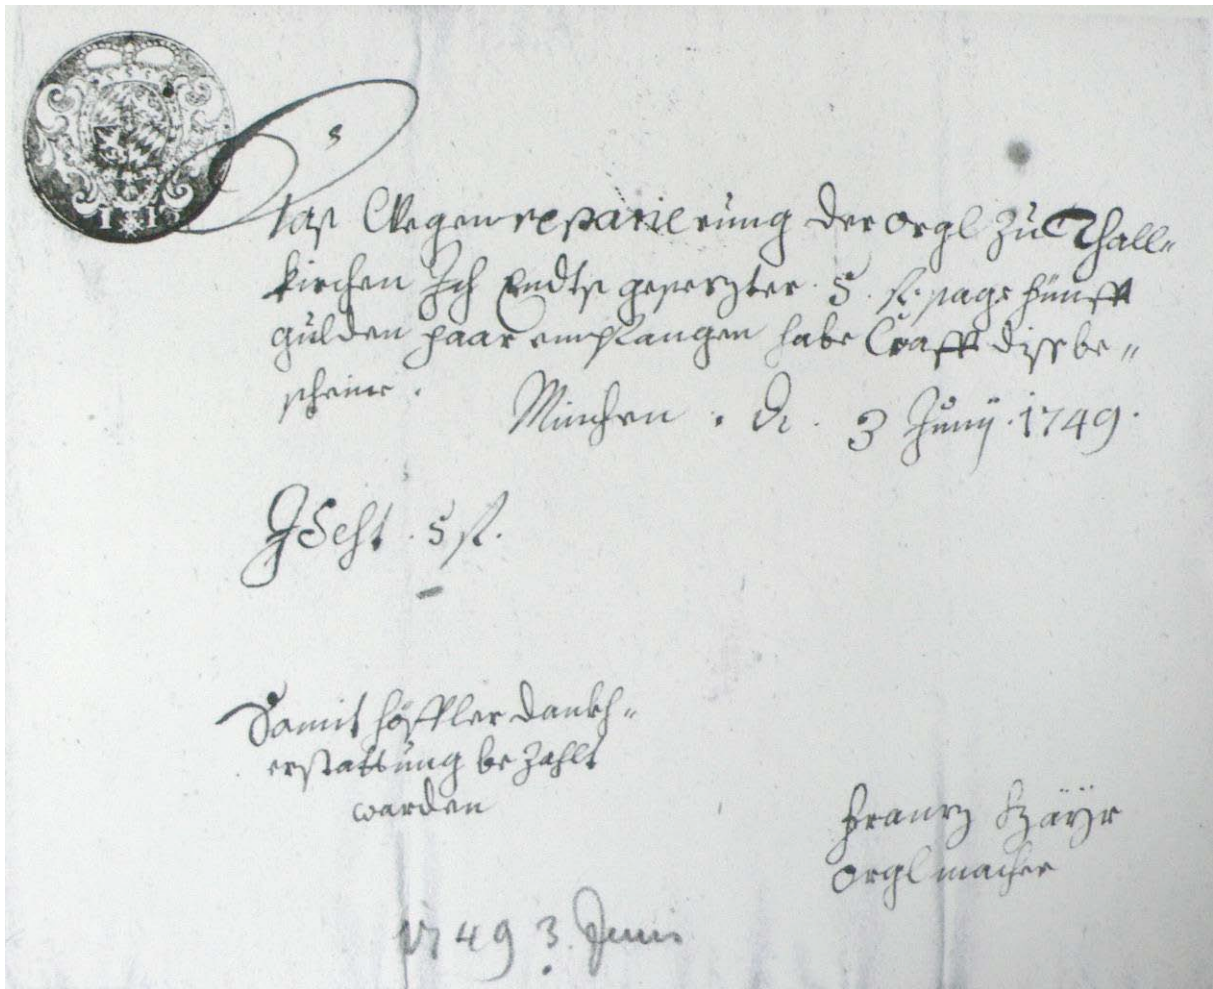 3
Daß Wegen reparierung der orgl zu Thall-
kirchen Ich Endts geseczter 5. fl. sage fünff
gulden paar empfangen habe Crafft diss be„
scheine.
München. d. 3 Junij. 1749.
Idest. 5 fl.
Damit höffler dankh„
erstattung bezahlt
warden
Franz
orglmacher
1749 3. Juni